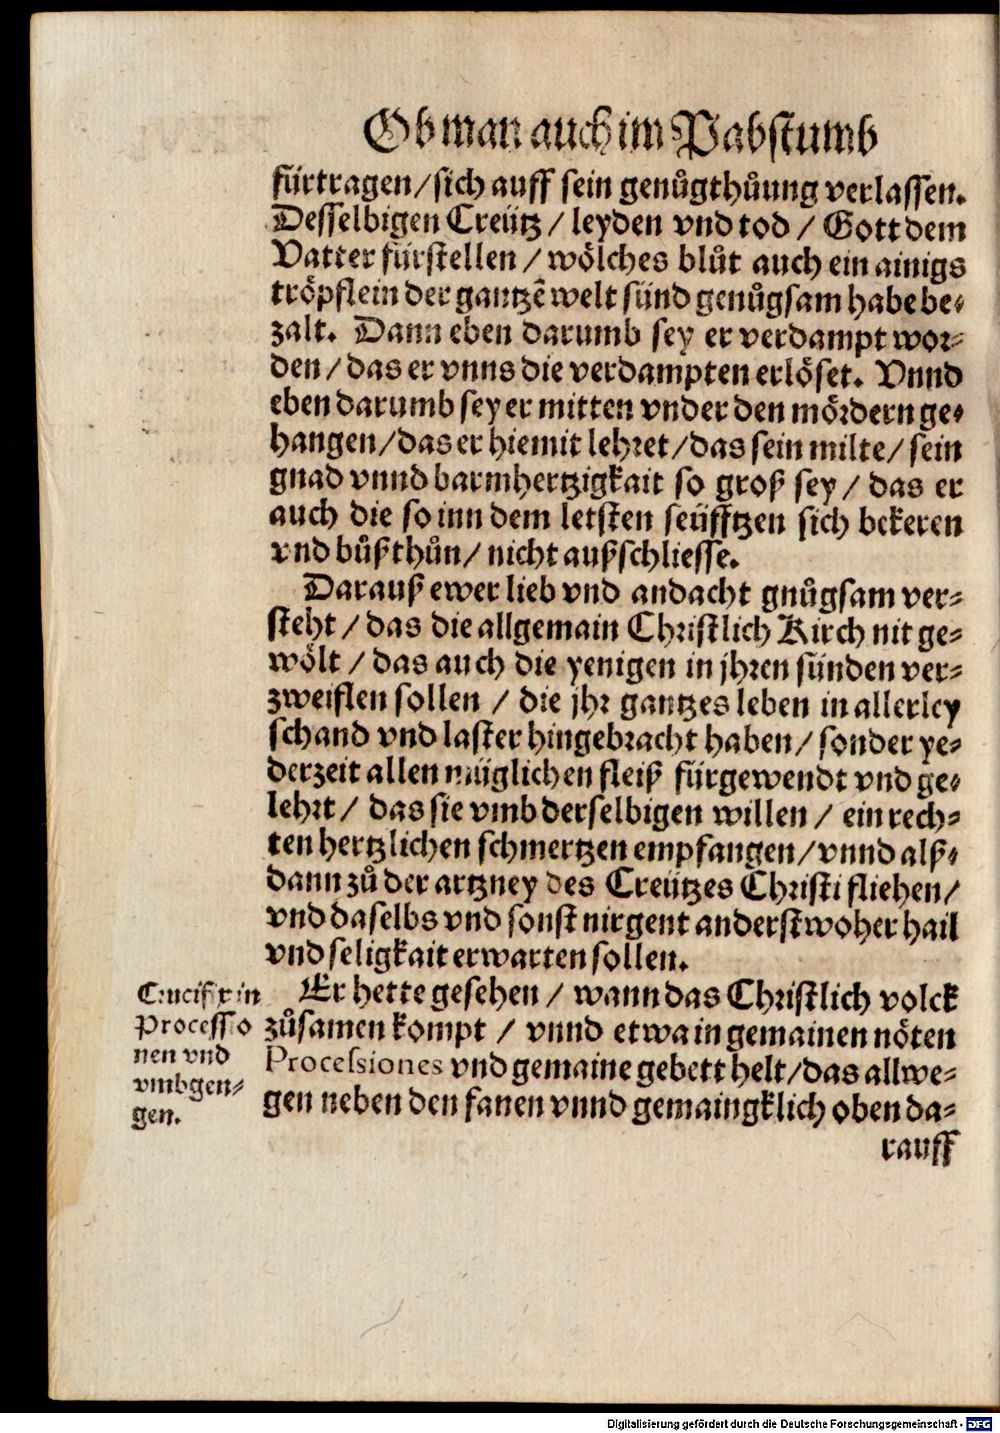 Ob man auch im Pabstumb
fürtragen / sich auff sein genůgthůung verlassen.
Desselbigen Creütz / leyden vnd tod / Gott dem
Vatter fürstellen / wölches blůt auch ein ainigs
tröpflein der gantzē welt sünd genůgsam habe be-
zalt. Dann eben darumb sey er verdampt wor-
den / das er vnns die verdampten erlöset. Vnnd
eben darumb sey er mitten vnder den mördern ge-
hangen / das er hiemit lehret / das sein milte / sein
gnad vnnd barmhertzigkait so groß sey / das er
auch die so inn dem letsten seüfftzen sich bekeren
vnd bůßthůn / nicht außschliesse.
Darauß ewer lieb vnd andacht gnůgsam ver-
steht / das die allgemain Christlich Kirch nit ge-
wölt / das auch die yenigen in jhren sünden ver-
zweiflen sollen / die jhr gantzes leben in allerley
schand vnd laster hingebracht haben / sonder ye-
derzeit allen müglichen fleiß fürgewendt vnd ge-
lehrt / das sie vmb derselbigen willen / ein rech-
ten hertzlichen schmertzen empfangen / vnnd alß-
dann zů der artzney des Creützes Christi fliehen /
vnd daselbs vnd sonst nirgent anderstwoher hail
vnd seligkait erwarten sollen.
Crucifix in
Processio
nen vnd
vmbgen-
gen.
Er hette gesehen / wann das Christlich volck
zůsamen kompt / vnnd etwa in gemainen nöten
Processiones vnd gemaine gebett helt / das allwe-
gen neben den fanen vnnd gemaingklich oben da-
rauff
Digitalisierung gefördert durch die Deutsche Forschungsgemeinschaft - DFG